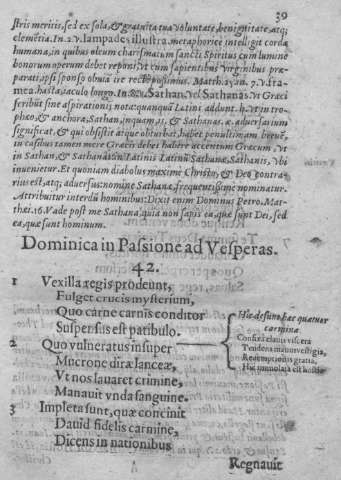 39
stris meritis, sed ex sola, & gratuita tua voluntate, benignitate, atq;
clemẽtia. In. 2. v. lampades illustra. metaphorice intelligit corda
humana, in quibus oleum charismatum sancti Spiritus cum lumine
bonorum operum debet reponi. vt cum sapientibus virginibus præ-
parati, ipsi sponso obuia ire possimus. Matth. 25. in. 7. v. fra-
mea. hasta, iaculo longo. In. 8. v. Sathan, vel Sathanas. Vt Græci
scribũt sine aspirationis nota: quanquã Latini addunt. h. vt in tro-
pheo, & anchora, Sathan, inquam, & Sathanas. æ. aduersarium
significat, & qui obsistit atque obturbat, habet penultimam breuẽ,
in casibus tamen mere Græcis debet habere accentum Græcum. Vt
in Sathan, & Sathanas: in Latinis Latinũ Sathanæ, Sathanis, vbi
inuenietur. Et quoniam diabolus maxime Christo, & Deo contra-
rius est, atq; aduersus: nomine Sathanæ, frequentissime nominatur.
Attribuitur interdũ hominibus: Dixit enim Dominus Petro. Mat-
thæi. 16. Vade post me Sathana, quia non sapis ea, quæ sunt Dei, sed
ea, quæ sunt hominum.
Dominica in Passione ad Vesperas.
42.
1 Vexilla regis prodeunt,
Fulget crucis mysterium,
Quo carne carnis conditor
Suspensus est patibulo.
2 Quo vulneratus insuper
Mucrone diræ lanceæ,
Vt nos lauaret crimine,
Manauit vnda sanguine.
3 Impleta sunt, quæ concinit
Dauid fidelis carmine,
Dicens in nationibus
Hic desunt hæc quatuor
carmina
Confixa clauis viscera
Tendens manus vestigia,
Redemptionis gratia,
Hic immolata est hostia.
Regnauit